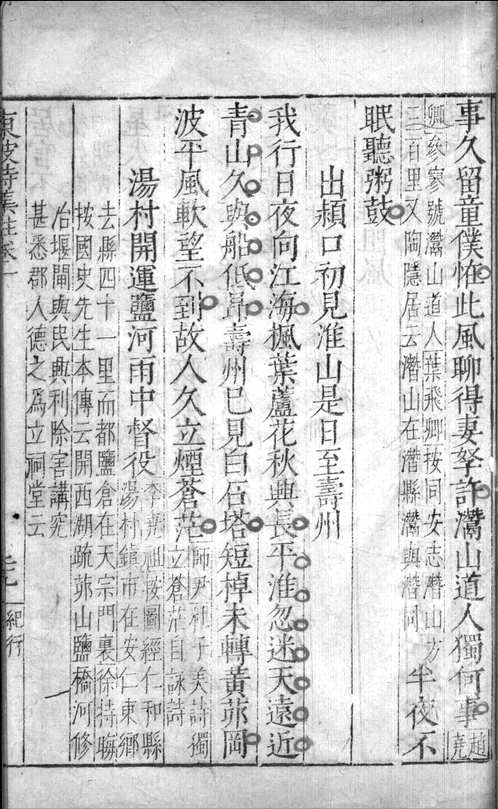 事久留童僕怪此風聊得妻孥許灊山道人獨何事趙堯
卿參寥號灊山道人葉飛卿按同安志灊山方
三百里又陶隱居云灊山在灊縣灊與潛同
半夜不
眠聽粥鼓
出潁口初見淮山是日至壽州
我行日夜向江海楓葉蘆花秋興長平淮忽迷天遠近
青山久與船低昂壽州已見白石塔短棹未轉黃茆岡
波平風軟望不到故人久立煙蒼茫師尹杜子美詩獨
立蒼茫自詠詩
湯村開運鹽河雨中督役李堯祖按圖經仁和縣
湯村鎮市在安仁東鄉
去縣四十一里而都鹽倉在天宗門裏徐持晦
按國史先生本傳云開西湖疏茆山鹽橋河修
治堰閘與民興利除害講究
甚悉郡人德之為立祠堂云
東坡詩集註卷一
紀行